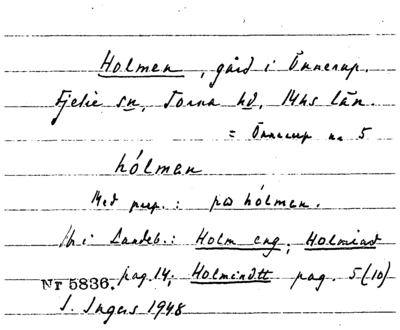 Holmen, gård i Önnerup.
Fjelie sn, Torna hd, Mhs län.
= Önnerup nr 5
hólmen
Med prep.: pɷ hólmen.
Nr i Landeb.: Holm eng; Holmiad
pag. 14; Holmendtt pag. 5 (10)
Nr 5836.
I. Ingers 1948